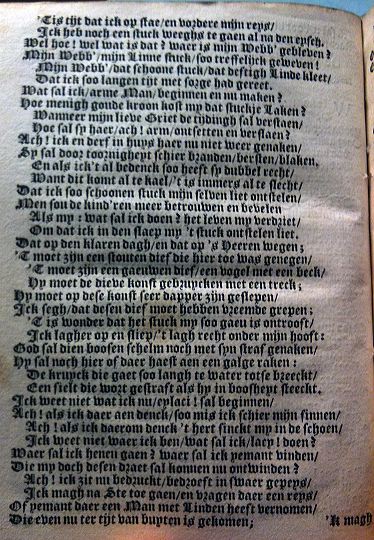 'Tis tijt dat ick op stae/en vordere mijn reys/
Jck heb noch een stuck weeghs te gaen al na den eysch.
Wel hoe! wel wat is dat? waer is mijn Webb' gebleven?
Mijn Webb'/mijn Linne stuck/soo treffelijck geweven!
Mijn Webb'/dat schoone stuck/dat deftigh Linde kleet/
Dat ick soo langen tijt met sorge had gereet.
Wat sal ick/arme Man/beginnen en nu maken?
Hoe menigh goude kroon kost my dat stuckje Laken?
Wanneer mijn lieve Griet de tijdingh sal verstaen/
Hoe sal sy haer/ach! arm/ontsetten en verslaen?
Ach! ick en derf in huys haer nu niet weer genaken/
Sy sal door toornigheyt schier branden/bersten/blaken.
En als ick't al bedenck soo heeft sy dubbel recht/
Want dit komt al te kael/'t is immers al te slecht/
Dat ick soo schoonen stuck mijn selven liet ontstelen/
Men sou de kind'ren nier betrouwen en bevelen
Als my: wat sal ick doen? het leven my verdriet/
Om dat ick in den slaep my 't stuck ontstelen liet.
Dat op den klaren dagh/en dat op 's Heeren wegen;
'T moet zijn een stouten dief die hier toe was genegen/
'T moet zijn een gaeuwen dief/een vogel met een beck/
Hy moet de dieve konst gebruycken met een treck;
Hy moet op dese konst seer dapper zijn geslepen/
Jck segh/dat desen dief moet hebben vreemde grepen;
'T is wonder dat het stuck my soo gaeu is ontrooft/
Jck lagher op en sliep/'t lagh recht onder mijn hooft:
God sal dien boosen schelm noch met syn straf genaken/
Hy sal noch hier of daer haest aen een galge raken:
De kruyck die gaet soo langh te water totse breeckt/
Een sielt die wort gestraft als hy in boosheyt steeckt.
Jck weet niet wat ick nu/eylaci! sal beginnen/
Ach! als ick daer aen denck/soo mis ick schier mijn sinnen/
Ach! als ick daerom denck 't hert sinckt my in de schoen/
Jck weet niet waer ick ben/wat sal ick/lacy! doen?
Waer sal ick henen gaen? waer sal ick yemant vinden/
Die my doch desen draet sal konnen nu ontwinden?
Ach! ick zit nu bedruckt/bedroeft in swaer gepeys/
Jck magh na Ste toe gaen/en vragen daer een reys/
Of yemant daer een Man met Linden heeft vernomen/
Die even nu ter tijt van buyten is gekomen;
'K magh